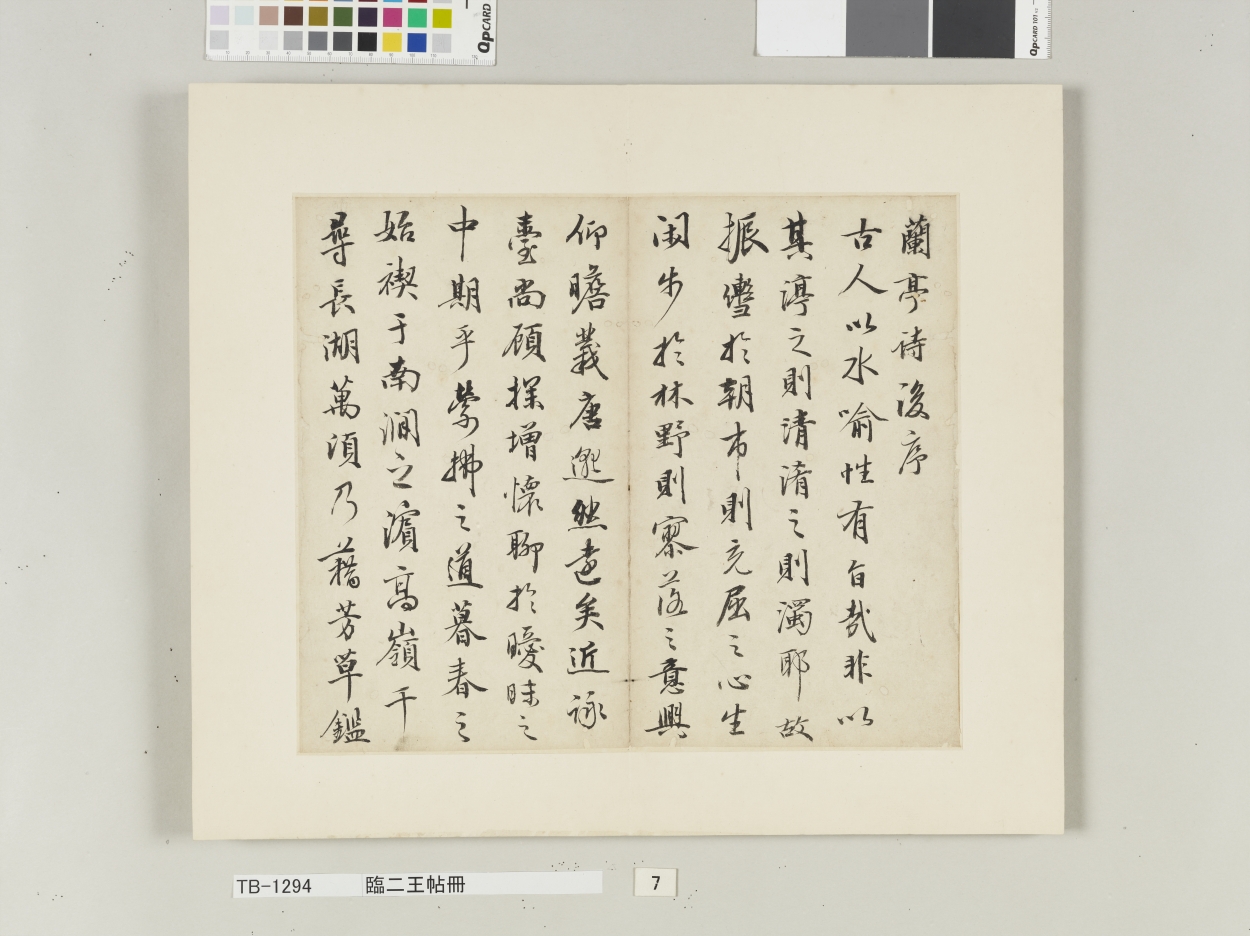 蘭亭詩後序
古人以水喻性有旨哉非以
其渟之則清淆之則濁耶故
振轡於朝市則充屈之心生
闲步於林野則寥落之意興
仰瞻羲唐邈然遠矣近詠
臺尚顧探增懷聊於曖昧之
中期乎瑩拂之道暮春之
始禊于南澗之濱高嶺千
尋長湖萬頃乃藉芳草鑑
TB-1294 臨二王帖冊
7
QpCARD
QpCARD 101